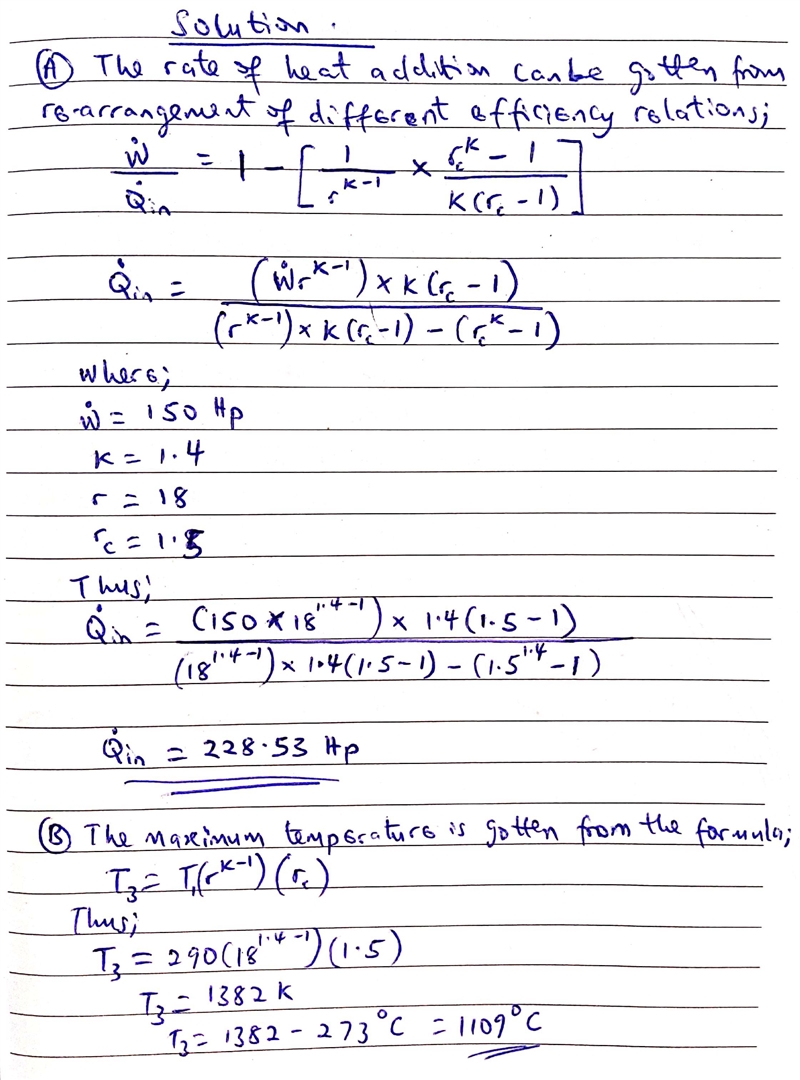 Solution.
Ⓐ The rate of heat addition can be gotten from
re-arrangement of different efficiency relations;
Ẇ/Q̇in = 1 - [1/r^(K-1) × (rc^K - 1)/(K(rc - 1))]
Q̇in = (Ẇr^(K-1)) × K(rc - 1) / ((r^(K-1)) × K(rc - 1) - (rc^K - 1))
where;
ẇ = 150 Hp
K = 1.4
r = 18
rc = 1.5
Thus;
Q̇in = (150 × 18^(1.4-1)) × 1.4(1.5 - 1) / ((18^(1.4-1)) × 1.4(1.5 - 1) - (1.5^1.4 - 1))
Q̇in = 228.53 Hp
Ⓑ The maximum temperature is gotten from the formula;
T3 = T1(r^(K-1))(rc)
Thus;
T3 = 290(18^(1.4-1))(1.5)
T3 = 1382 K
T3 = 1382 - 273°C = 1109°C